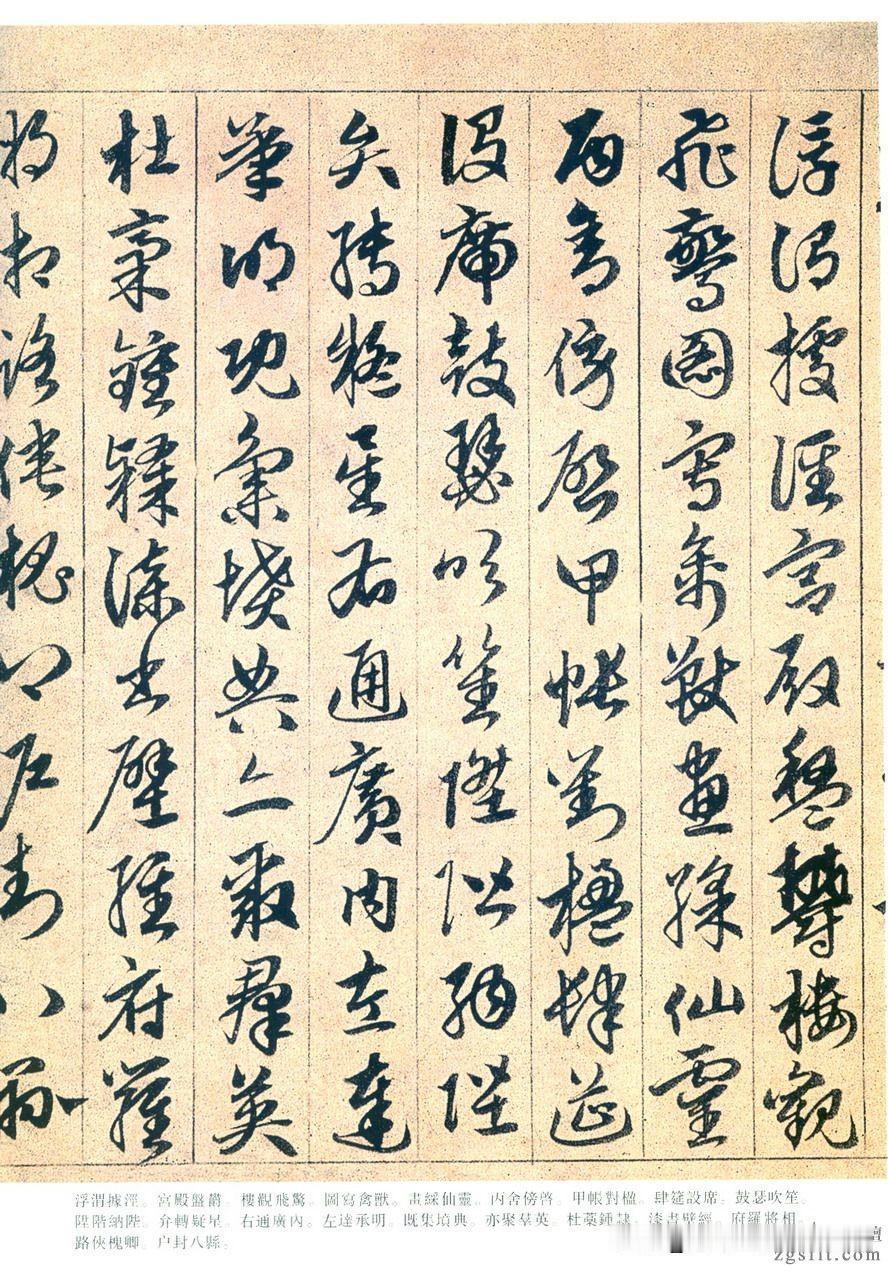 浮渭據涇宮殿盤欝樓觀
飛驚圖寫禽獸畫綵仙靈
丙舍傍啓甲帳對楹肆筵
設席鼓瑟吹笙陞階納陛
弁轉疑星右通廣內左達
承明既集墳典亦聚群英
杜稾鍾隸漆書壁經府羅
將相路俠槐卿户封八縣
浮渭據涇。宮殿盤爵。樓觀飛驚。圖寫禽獸。畫綵仙靈。内舍傍啓。甲帳對楹。肆筵設席。鼓瑟吹笙。
陞階納陛。弁轉疑星。右通廣內。左達承明。既集墳典。亦聚羣英。杜藁鍾隸。漆書壁經。府羅將相。
路俠槐卿。户封八縣。